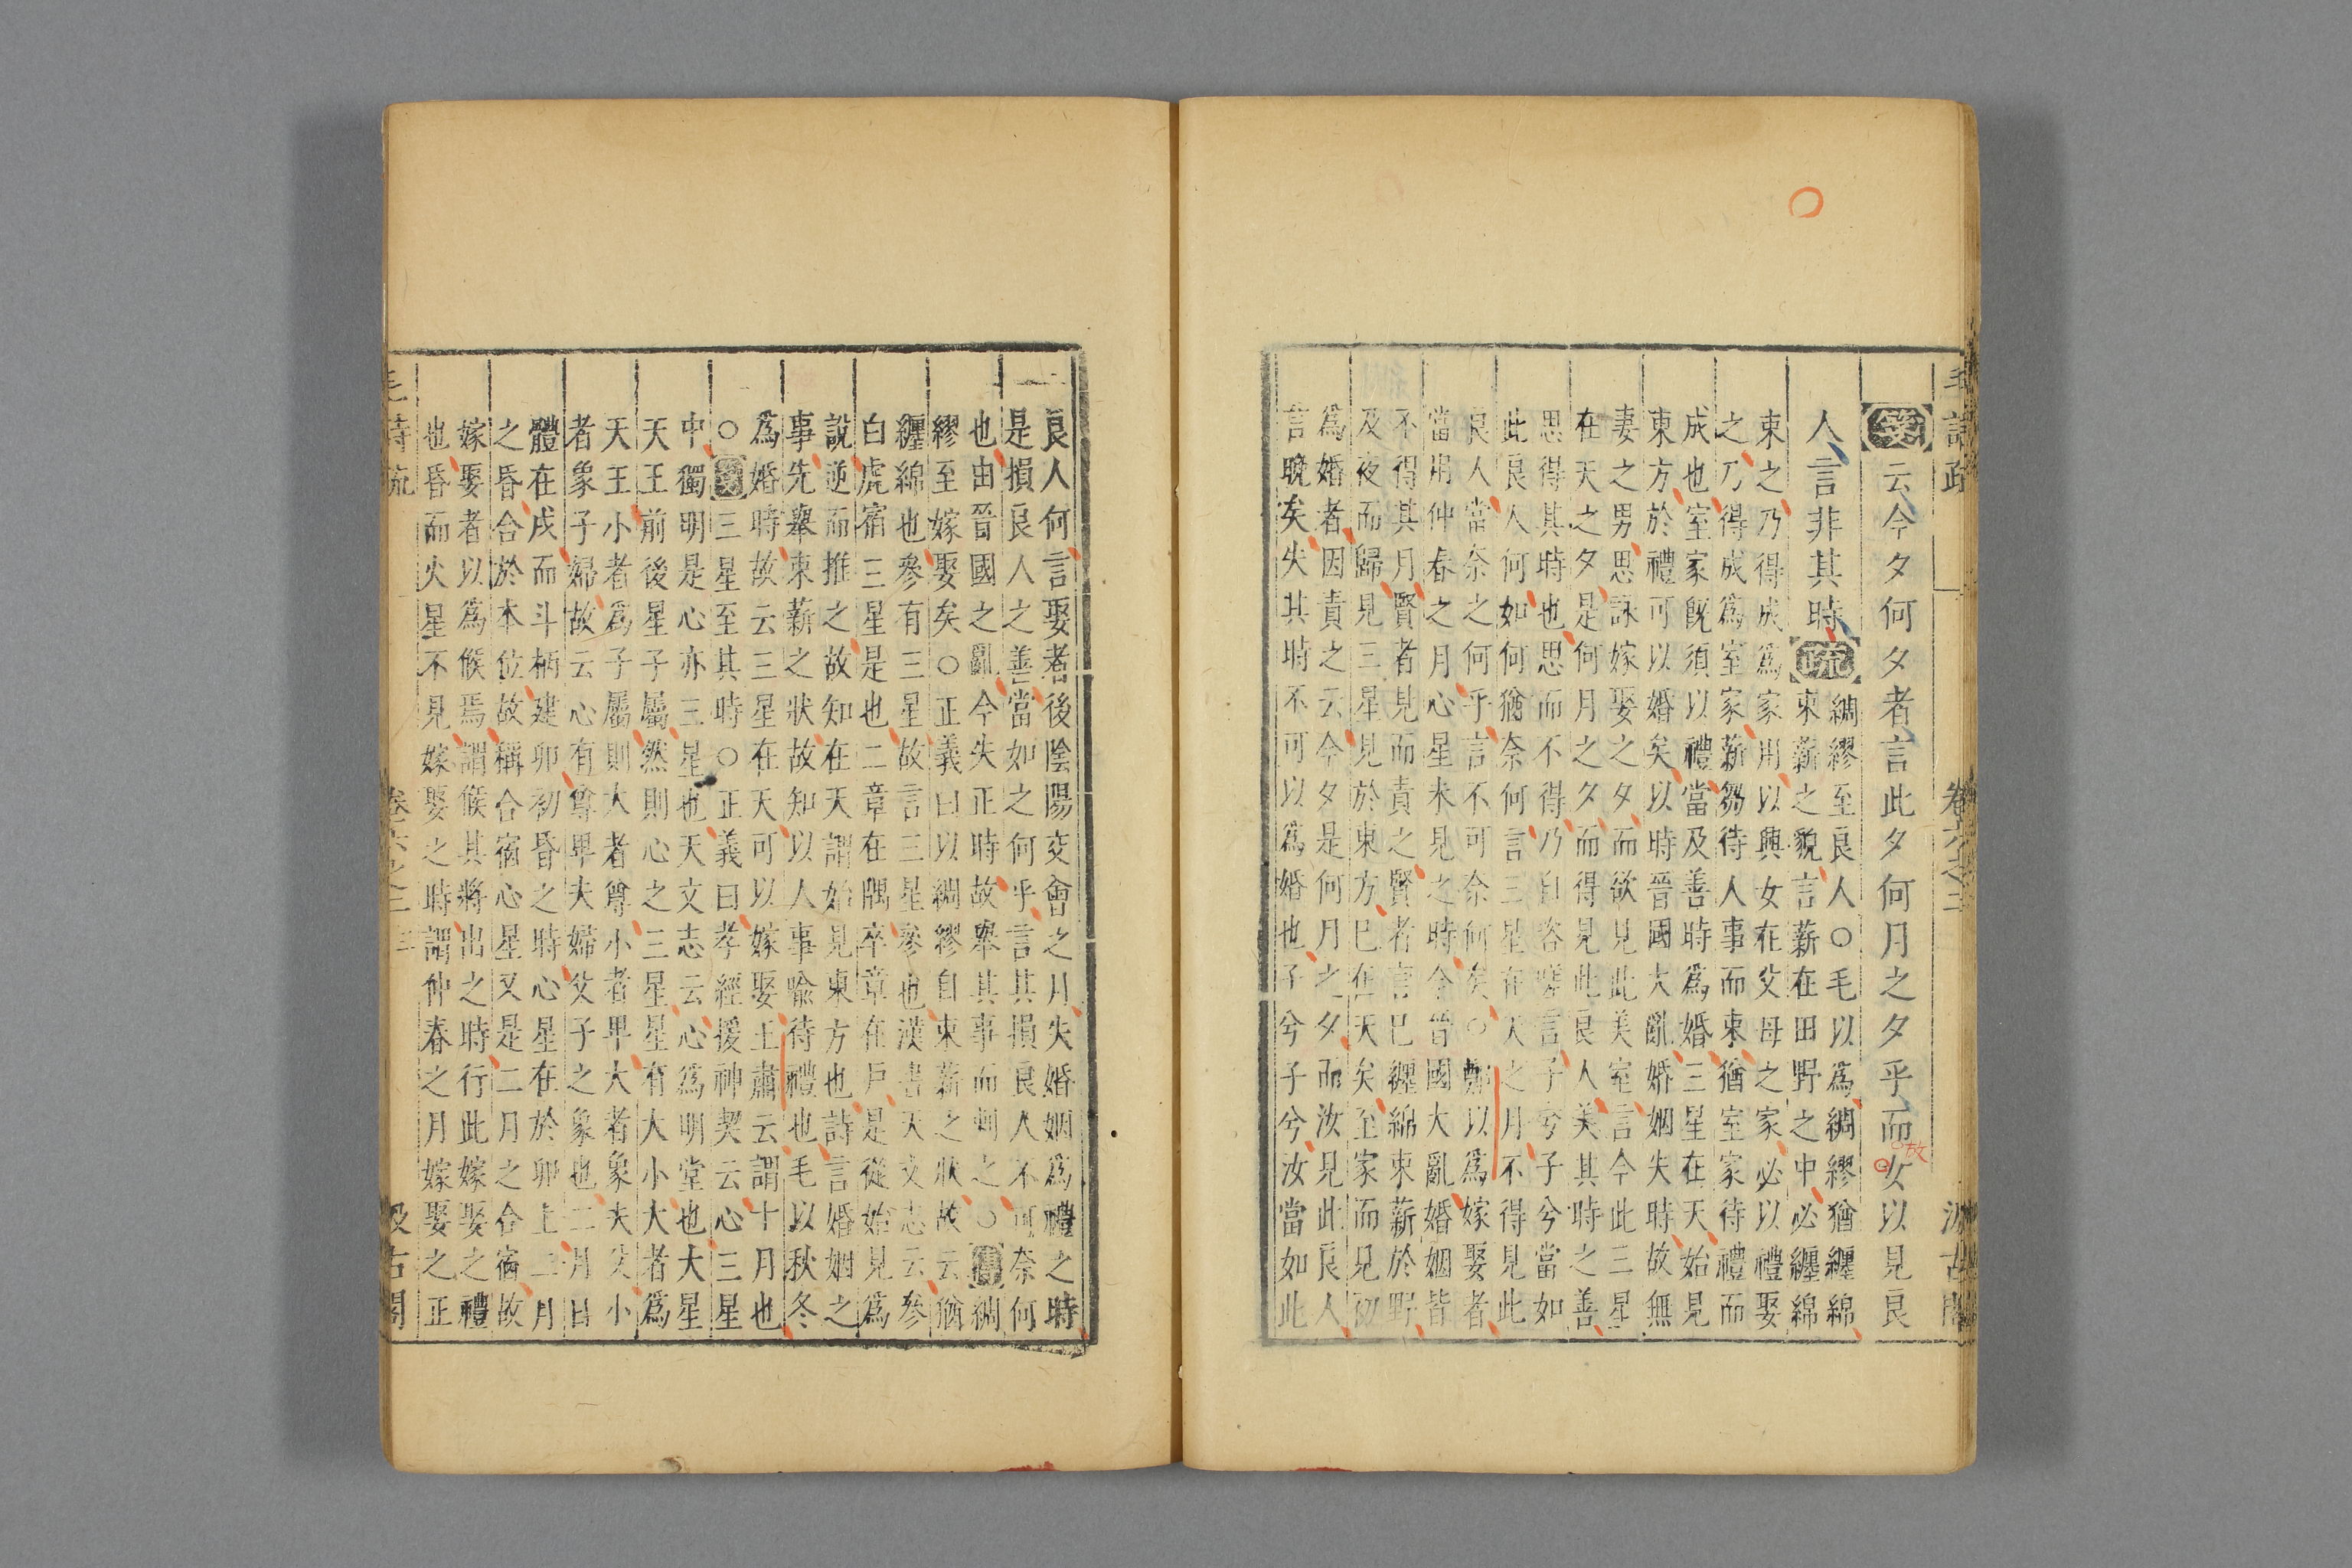 毛詩疏 卷六之二 汲古閣
箋云今夕何夕者言此夕何月之夕乎而女以見良
人言非其時疏
綢繆至良人○毛以爲綢繆猶纏綿
束薪之貌言薪在田野之中必纏綿
束之乃得成爲家用以興女在父母之家必以禮娶
之乃得成爲室家薪芻待人事而束猶室家待禮而
成也室家既須以禮當及善時爲婚三星在天始見
東方於禮可以婚矣以時晉國大亂婚姻失時故無
妻之男思詠嫁娶之夕而欲見此美室言今此三星
在天之夕是何月之夕而得見此良人美其時之善
思得其時也思而不得乃自咨嗟言子兮子兮當如
此良人何如何猶奈何言三星在天之月不得見此
良人當奈之何乎言不可奈何矣○鄭以爲嫁娶者
當用仲春之月心星未見之時今晉國大亂婚姻皆
不得其月賢者見而責之賢者言巳纏綿束薪於野
及夜而歸見三星見於東方巳在天矣至家而見初
爲婚者因責之云今夕是何月之夕而汝見此良人
言晚矣失其時不可以爲婚也子兮子兮汝當如此
良人何言娶者後陰陽交會之月失婚姻爲禮之時
是損良人之善當如之何乎言其損良人不可奈何
也由晉國之亂今失正時故舉其事而刺之○傳綢
繆至嫁娶矣○正義曰以綢繆自束薪之狀故云猶
纏綿也參有三星故言三星參也漢書天文志云參
白虎宿三星是也二章在隅卒章在戶是從始見爲
說逆而推之故知在天謂始見東方也詩言婚姻之
事先舉束薪之狀故知以人事喻待禮也毛以秋冬
爲婚時故云三星在天可以嫁娶王肅云謂十月也
○箋三星至其時○正義曰孝經援神契云心三星
中獨明是心亦三星也天文志云心爲明堂也大星
天王前後星子屬然則心之三星星有大小大者爲
天王小者爲子屬則大者尊小者卑大者象夫父小
者象子婦故云心有尊卑夫婦父子之象也二月日
體在戌而斗柄建卯初昏之時心星在於卯上二月
之昏合於本位故稱合宿心星又是二月之合宿故
嫁娶者以爲候焉謂候其將出之時行此嫁娶之禮
也昏而火星不見嫁娶之時謂仲春之月嫁娶之正
毛詩疏 卷六之二 三 汲古閣
故